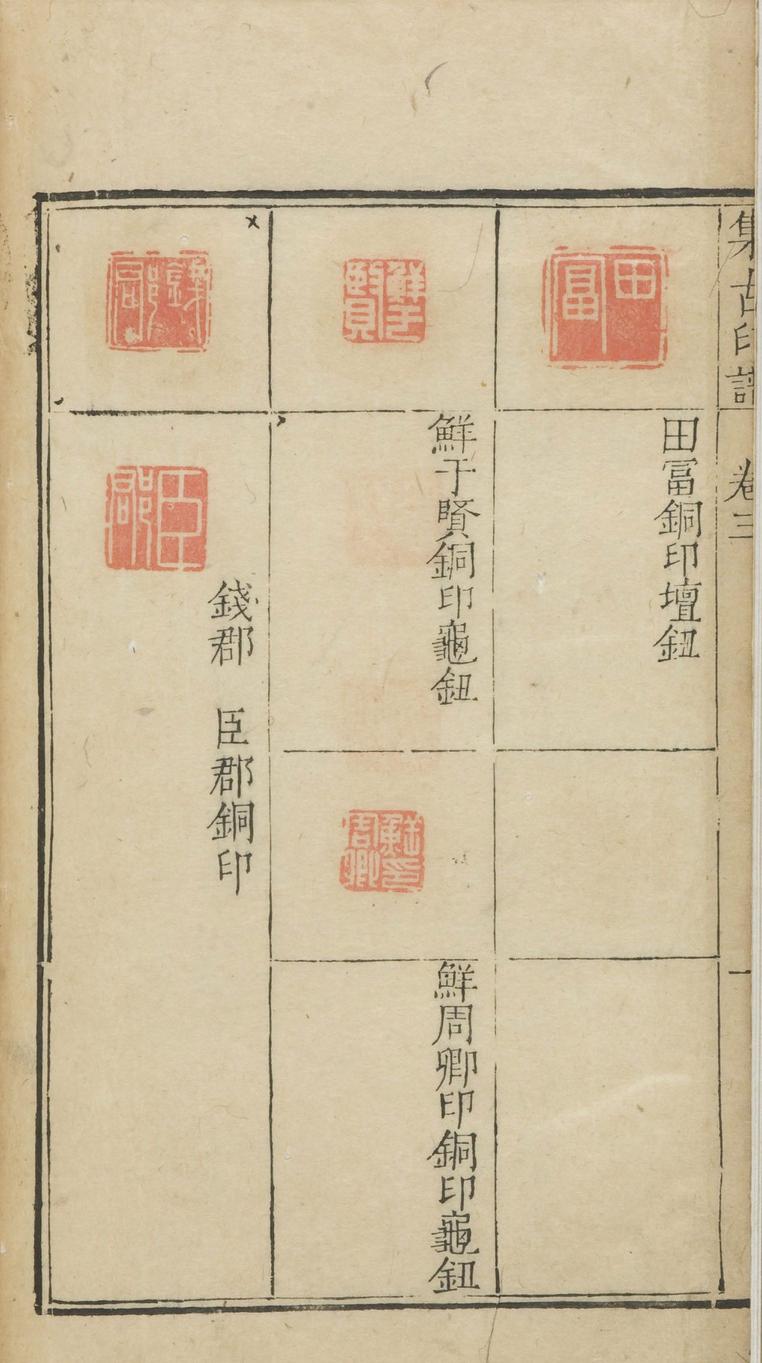 集古印譜 卷三
一
田富
田冨銅印壇鈕
鮮于賢
鮮于賢銅印龜鈕
鮮周卿印
鮮周卿印銅印龜鈕
錢郡
臣郡
錢郡 臣郡銅印